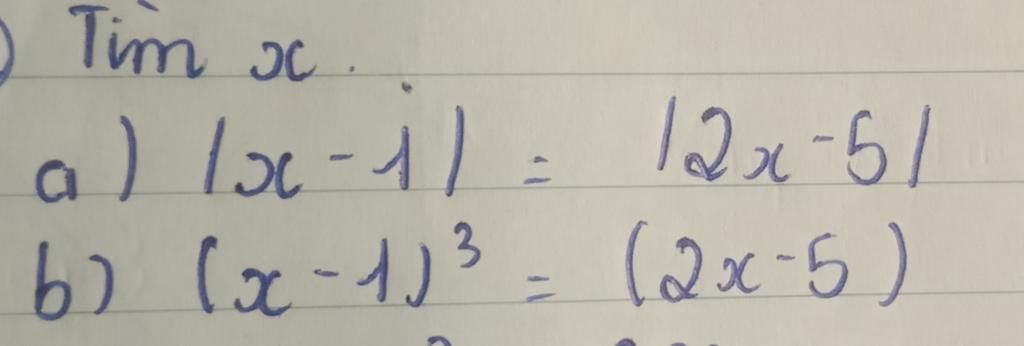 ) Tìm x.
a) |x - 1| = |2x - 5|
b) (x - 1)³ = (2x - 5)